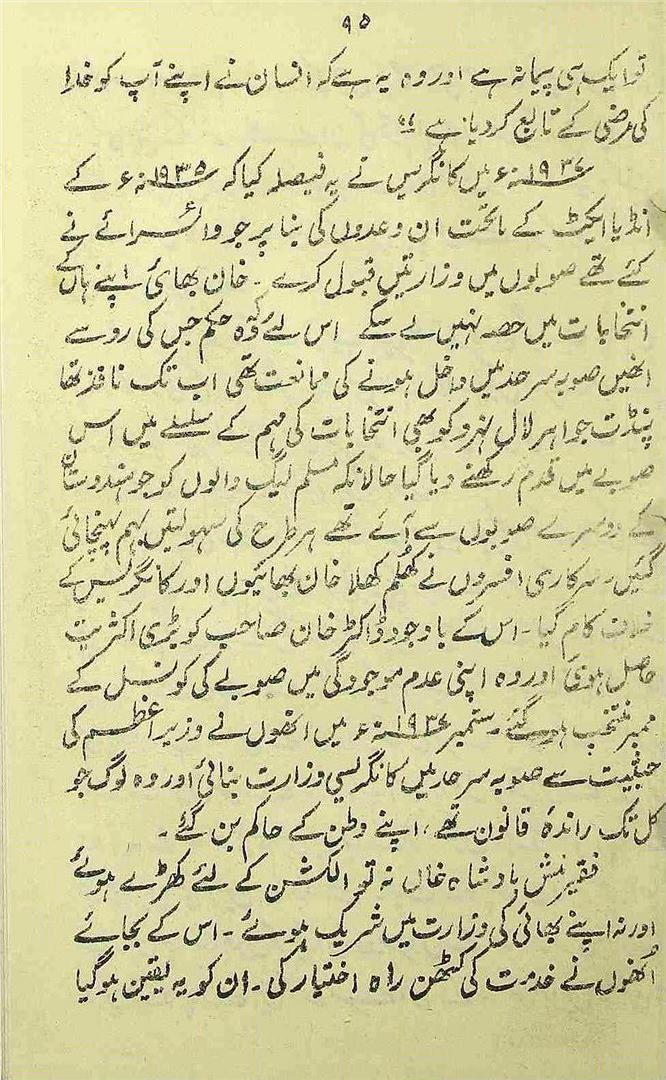 ۹۵
تو ایک ہی پیمانہ ہے اور وہ یہ ہے کہ انسان نے اپنے آپ کو خدا
کی مرضی کے تابع کر دیا ہے"
۱۹۳۷ء میں کانگریس نے یہ فیصلہ کیا کہ ۱۹۳۵ء کے
انڈیا ایکٹ کے ماتحت ان وعدوں کی بنا پر جو وائسرائے نے
کئے تھے صوبوں میں وزارتیں قبول کرے۔ خان بھائی اپنے ہاں کے
انتخابات میں حصہ نہیں لے سکے اس لئے کہ وہ حکم جس کی رو سے
انھیں صوبہ سرحد میں داخل ہونے کی ممانعت تھی اب تک نافذ تھا
پنڈت جواہر لال نہرو کو بھی انتخابات کی مہم کے سلسلے میں اس
صوبے میں قدم نہ رکھنے دیا گیا حالانکہ مسلم لیگ والوں کو جو ہندوستان
کے دوسرے صوبوں سے آئے تھے ہر طرح کی سہولتیں بہم پہنچائی
گئیں۔ سرکاری افسروں نے کھلم کھلا خان بھائیوں اور کانگریس کے
خلاف کام کیا۔ اس کے باوجود ڈاکٹر خان صاحب کو بڑی اکثریت
حاصل ہوئی اور وہ اپنی عدم موجودگی میں صوبے کی کونسل کے
ممبر منتخب ہو گئے۔ ستمبر ۱۹۳۷ء میں انھوں نے وزیر اعظم کی
حیثیت سے صوبہ سرحد میں کانگریسی وزارت بنائی اور وہ لوگ جو
کل تک راندۂ قانون تھے، اپنے وطن کے حاکم بن گئے۔
فقیر منش بادشاہ خاں نہ تو الکشن کے لئے کھڑے ہوئے
اور نہ اپنے بھائی کی وزارت میں شریک ہوئے۔ اس کے بجائے
اُنھوں نے خدمت کی کٹھن راہ اختیار کی۔ ان کو یہ یقین ہو گیا